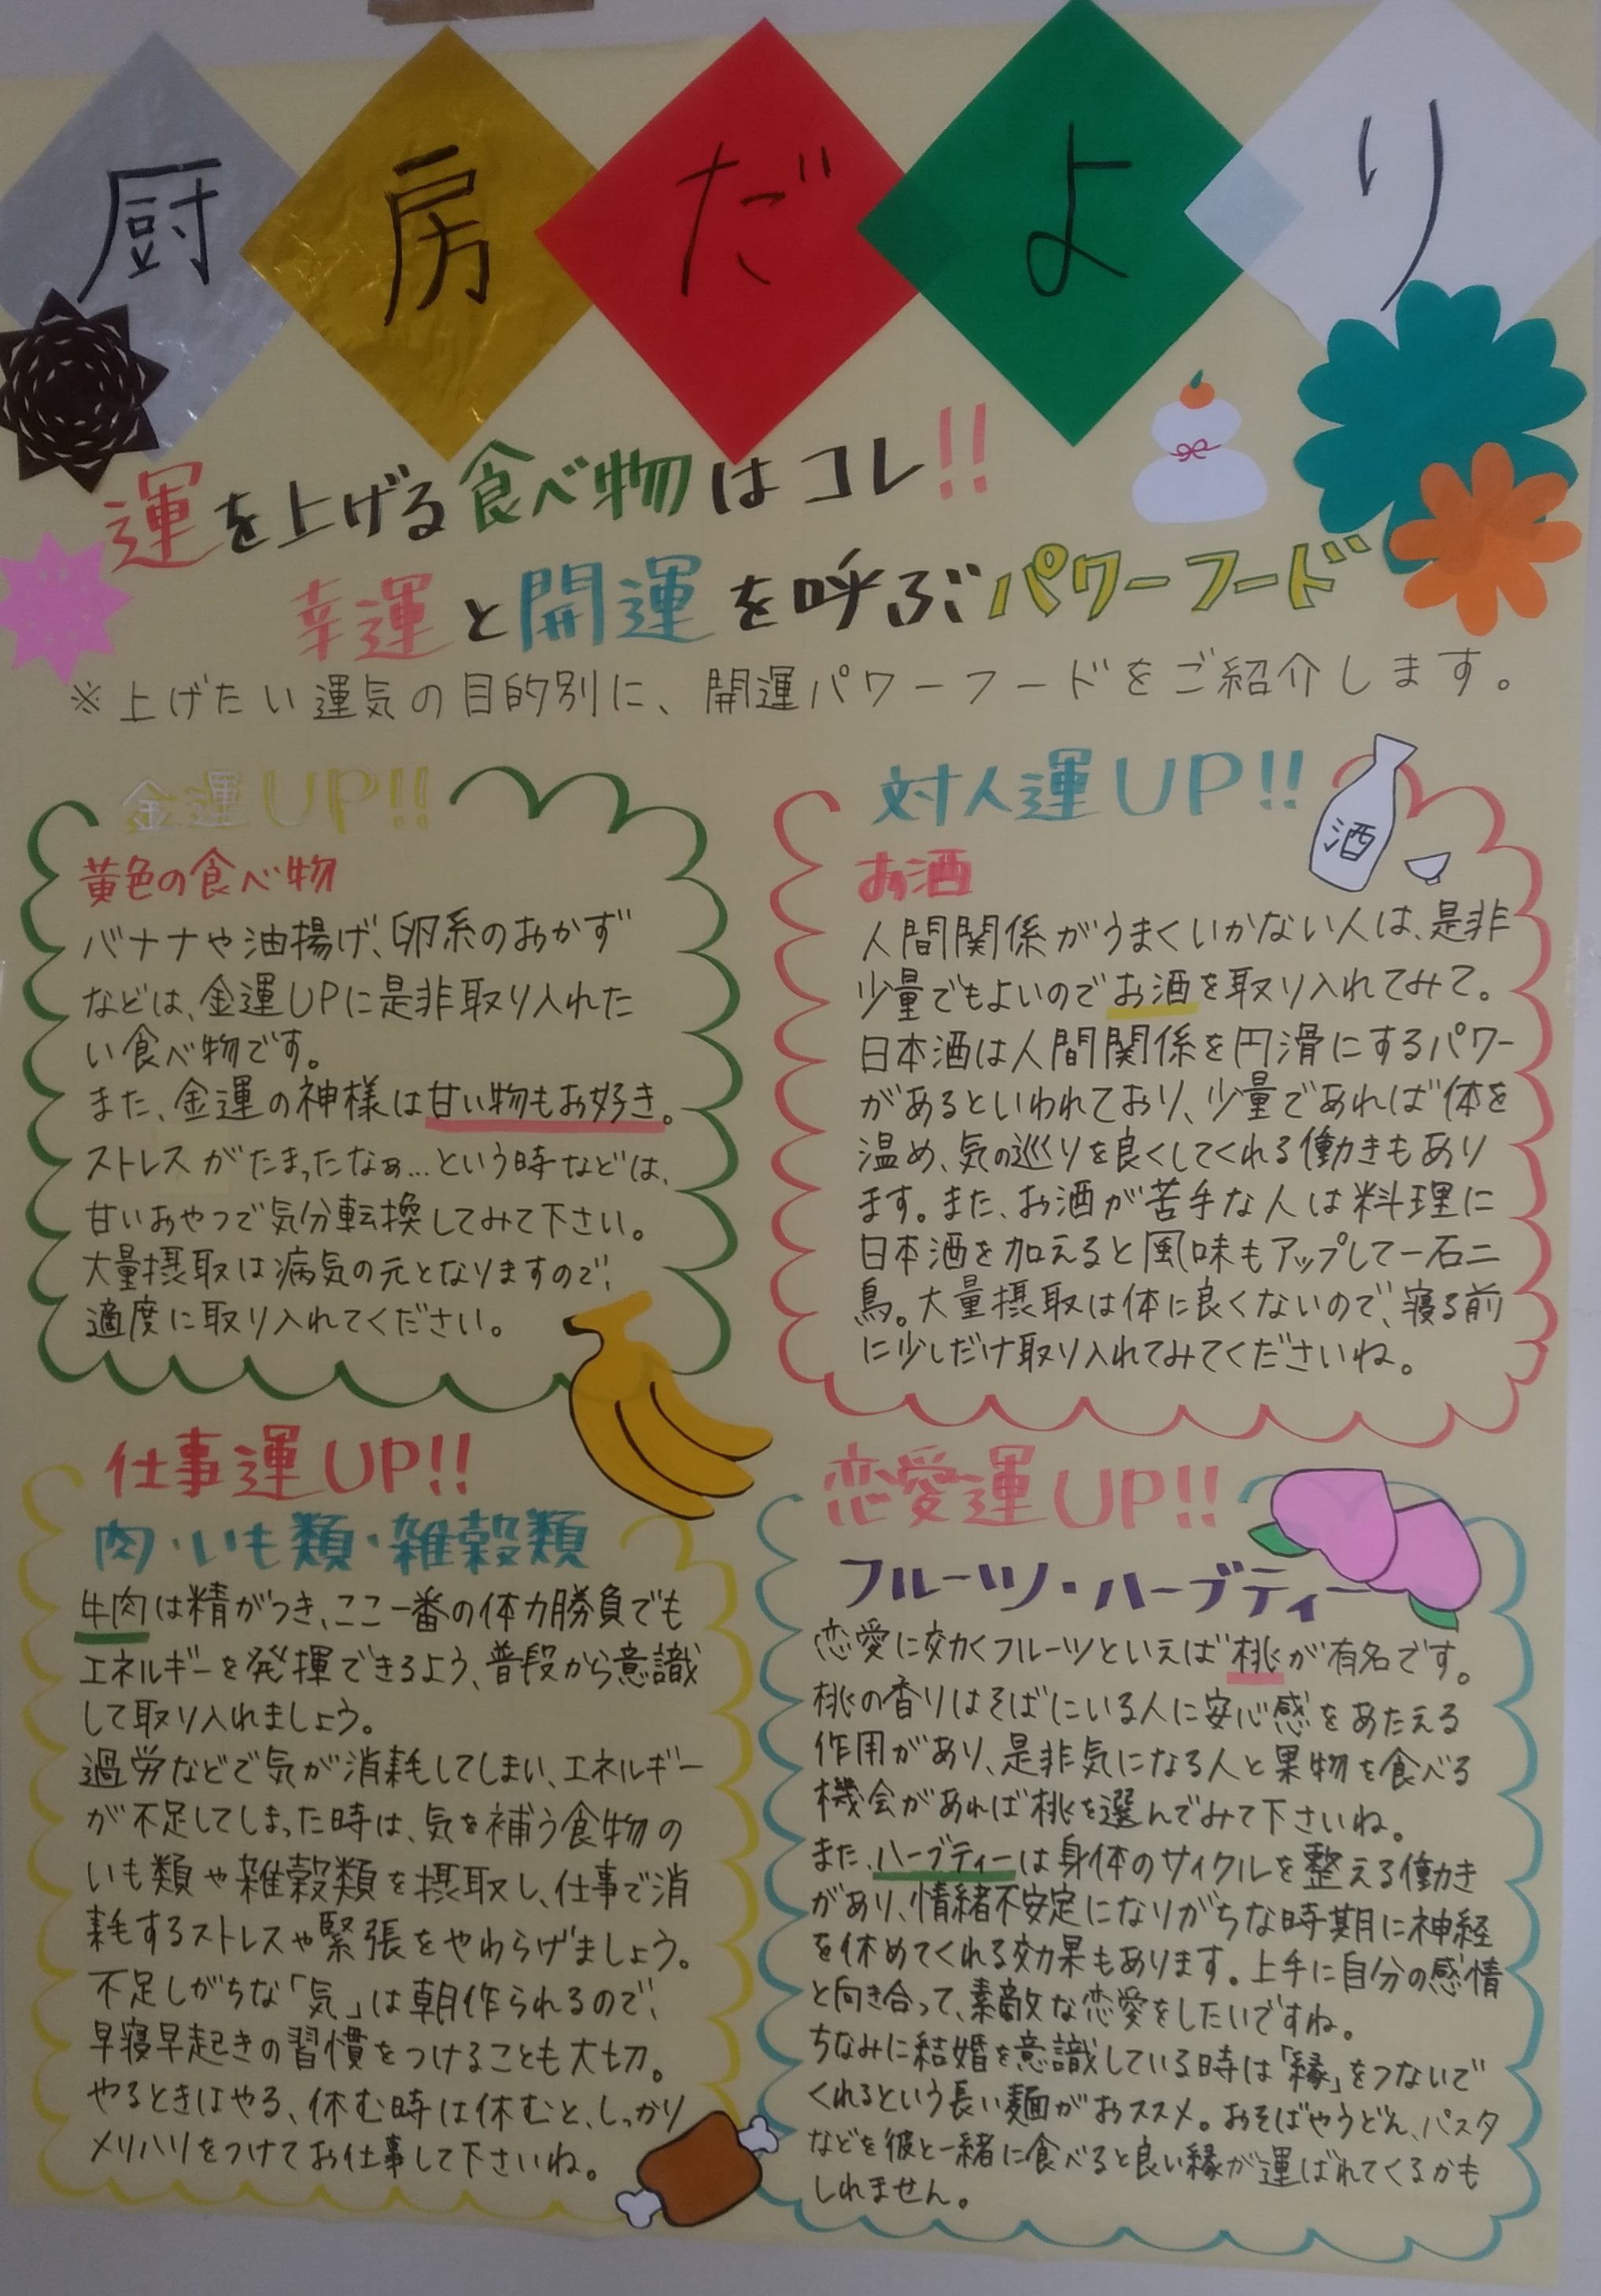 厨房だより
運を上げる食べ物はコレ!!
幸運と開運を呼ぶパワーフード
※上げたい運気の目的別に、開運パワーフードをご紹介します。
金運UP!!
黄色の食べ物
バナナや油揚げ、卵系のおかず
などは、金運UPに是非取り入れた
い食べ物です。
また、金運の神様は甘い物もお好き。
ストレスがたまったなぁ…という時などは、
甘いおやつで気分転換してみて下さい。
大量摂取は病気の元となりますので、
適度に取り入れてください。
対人運UP!!
酒
お酒
人間関係がうまくいかない人は、是非
少量でもよいのでお酒を取り入れてみて。
日本酒は人間関係を円滑にするパワー
があるといわれており、少量であれば体を
温め、気の巡りを良くしてくれる働きもあり
ます。また、お酒が苦手な人は料理に
日本酒を加えると風味もアップして一石二
鳥。大量摂取は体に良くないので、寝る前
に少しだけ取り入れてみてくださいね。
仕事運UP!!
肉・いも類・雑穀類
牛肉は精がつき、ここ一番の体力勝負でも
エネルギーを発揮できるよう、普段から意識
して取り入れましょう。
過労などで気が消耗してしまい、エネルギー
が不足してしまった時は、気を補う食物の
いも類や雑穀類を摂取し、仕事で消
耗するストレスや緊張をやわらげましょう。
不足しがちな「気」は朝作られるので、
早寝早起きの習慣をつけることも大切。
やるときはやる、休む時は休むと、しっかり
メリハリをつけてお仕事して下さいね。
恋愛運UP!!
フルーツ・ハーブティー
恋愛に効くフルーツといえば桃が有名です。
桃の香りはそばにいる人に安心感をあたえる
作用があり、是非気になる人と果物を食べる
機会があれば桃を選んでみて下さいね。
また、ハーブティーは身体のサイクルを整える働き
があり、情緒不安定になりがちな時期に神経
を休めてくれる効果もあります。上手に自分の感情
と向き合って、素敵な恋愛をしたいですね。
ちなみに結婚を意識している時は「縁」をつないで
くれるという長い麺がおススメ。おそばやうどん、パスタ
などを彼と一緒に食べると良い縁が運ばれてくるかも
しれません。